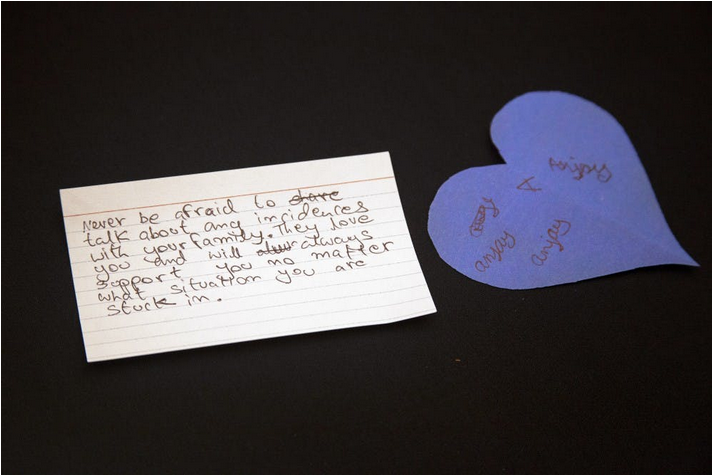 Never be afraid to share
talk about any incidences
with your family. They love
you and will always
support you no matter
what situation you are
stuck in.
A Anjay
anjay anjay